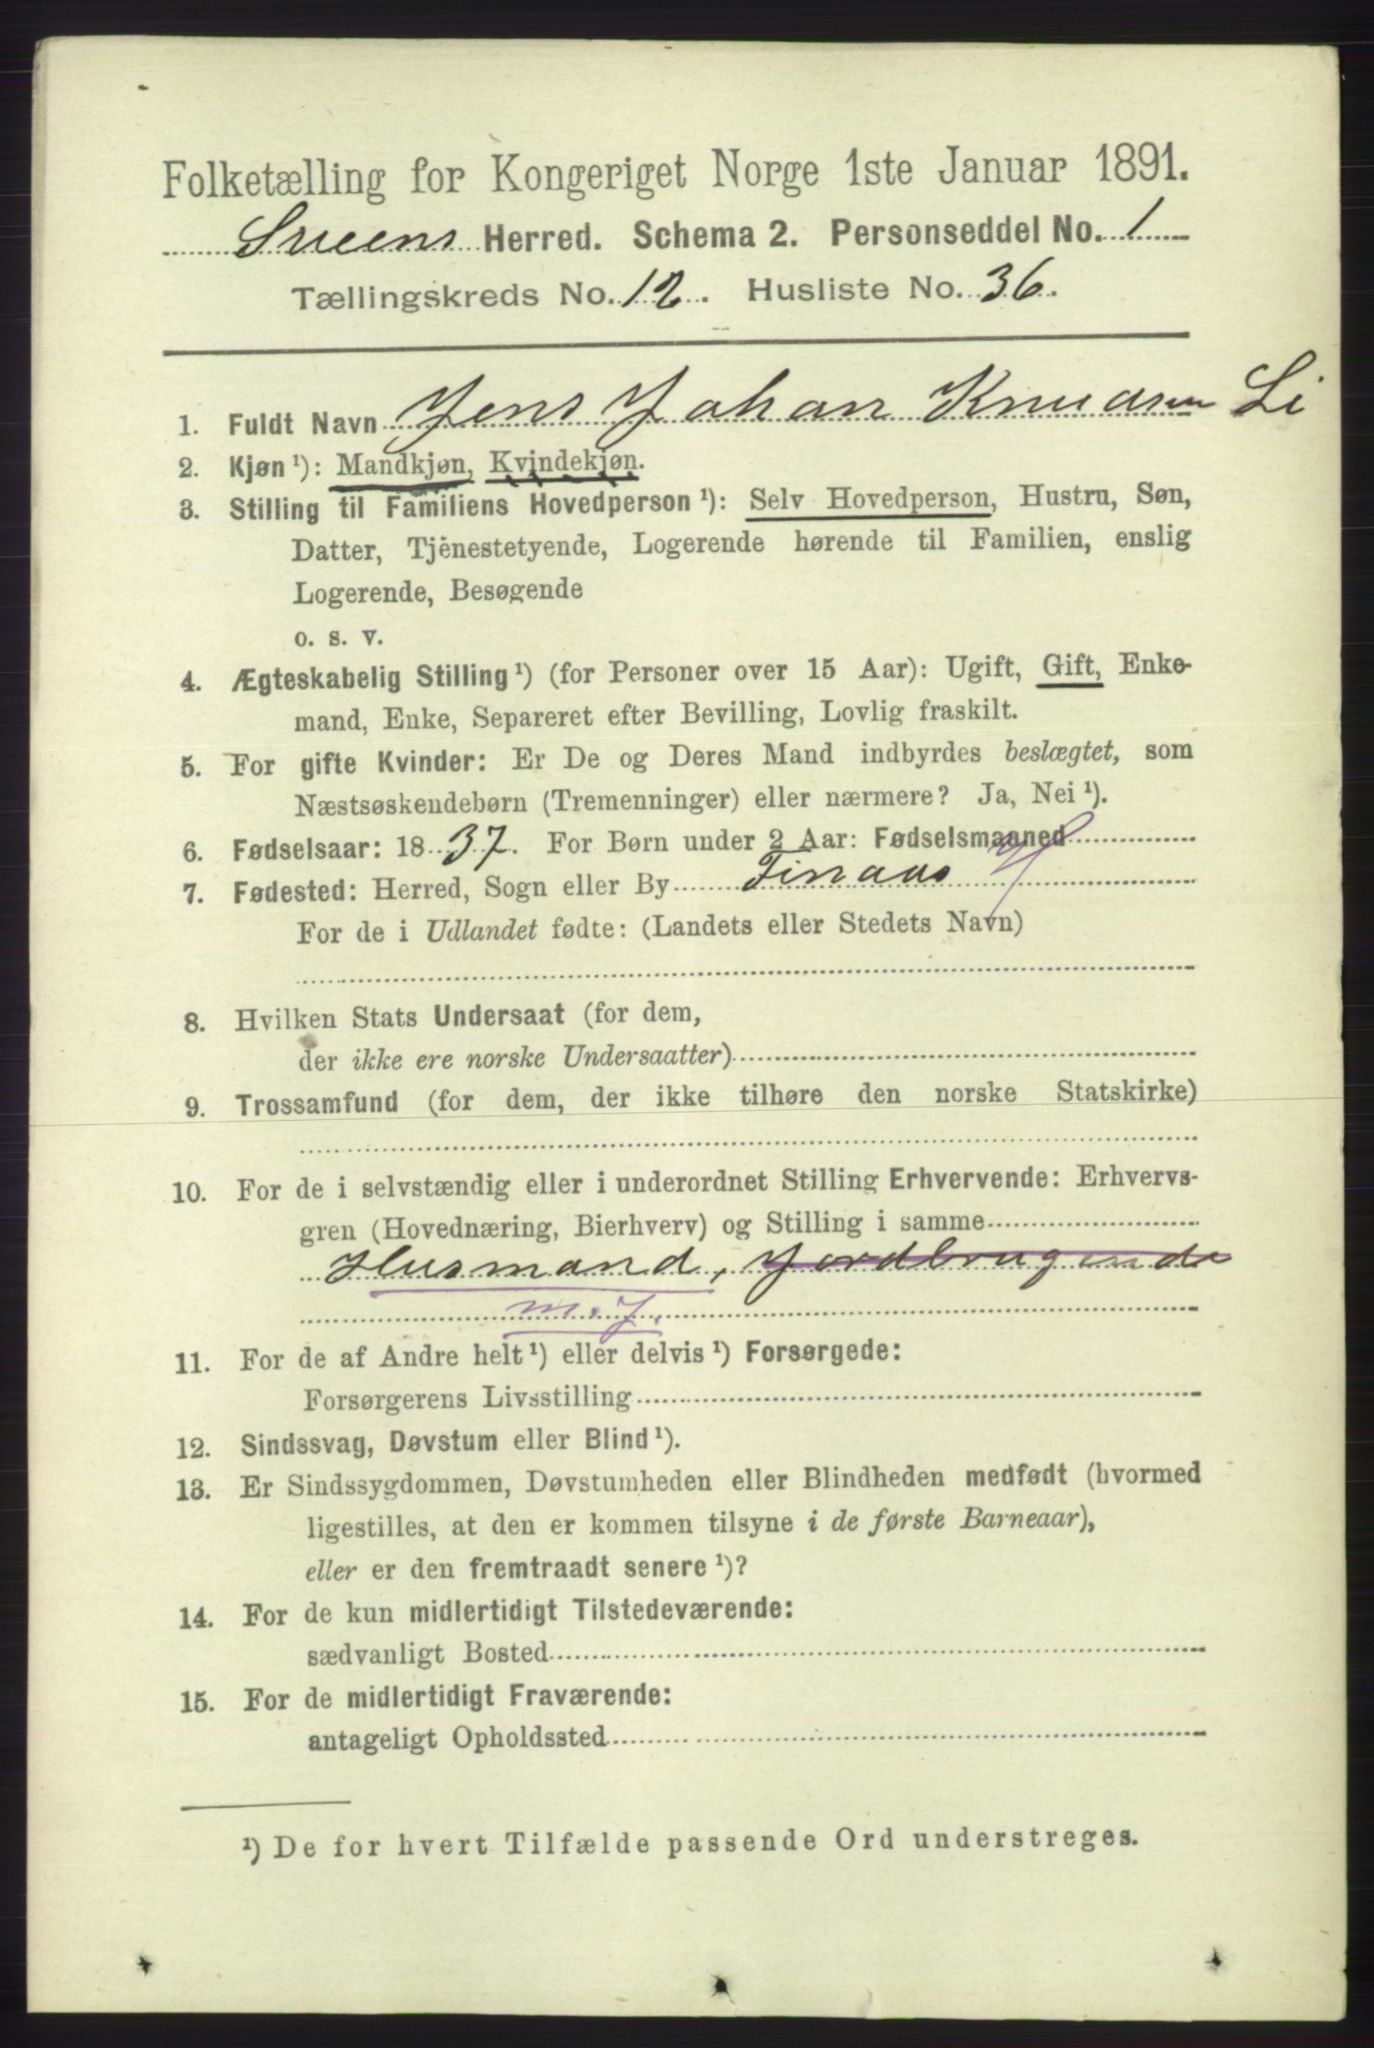 Folketælling for Kongeriget Norge 1ste Januar 1891.
Sveens Herred. Schema 2. Personseddel No. 1
Tællingskreds No. 12. Husliste No. 36.
1. Fuldt Navn Jens Johan Knudsen Li
2. Kjøn ¹): Mandkjøn, Kvindekjøn.
3. Stilling til Familiens Hovedperson ¹): Selv Hovedperson, Hustru, Søn,
Datter, Tjenestetyende, Logerende hørende til Familien, enslig
Logerende, Besøgende
o. s. v.
4. Ægteskabelig Stilling ¹) (for Personer over 15 Aar): Ugift, Gift, Enke-
mand, Enke, Separeret efter Bevilling, Lovlig fraskilt.
5. For gifte Kvinder: Er De og Deres Mand indbyrdes beslægtet, som
Næstsøskendebørn (Tremenninger) eller nærmere? Ja, Nei ¹).
6. Fødselsaar: 1837. For Børn under 2 Aar: Fødselsmaaned
7. Fødested: Herred, Sogn eller By Finaas
For de i Udlandet fødte: (Landets eller Stedets Navn)
8. Hvilken Stats Undersaat (for dem,
der ikke ere norske Undersaatter)
9. Trossamfund (for dem, der ikke tilhøre den norske Statskirke)
10. For de i selvstændig eller i underordnet Stilling Erhvervende: Erhvervs-
gren (Hovednæring, Bierhverv) og Stilling i samme
Husmand, Jordbrugende
m. J.
11. For de af Andre helt ¹) eller delvis ¹) Forsørgede:
Forsørgerens Livsstilling
12. Sindssvag, Døvstum eller Blind ¹).
13. Er Sindssygdommen, Døvstumheden eller Blindheden medfødt (hvormed
ligestilles, at den er kommen tilsyne i de første Barneaar),
eller er den fremtraadt senere ¹)?
14. For de kun midlertidigt Tilstedeværende:
sædvanligt Bosted
15. For de midlertidigt Fraværende:
antageligt Opholdssted
¹) De for hvert Tilfælde passende Ord understreges.